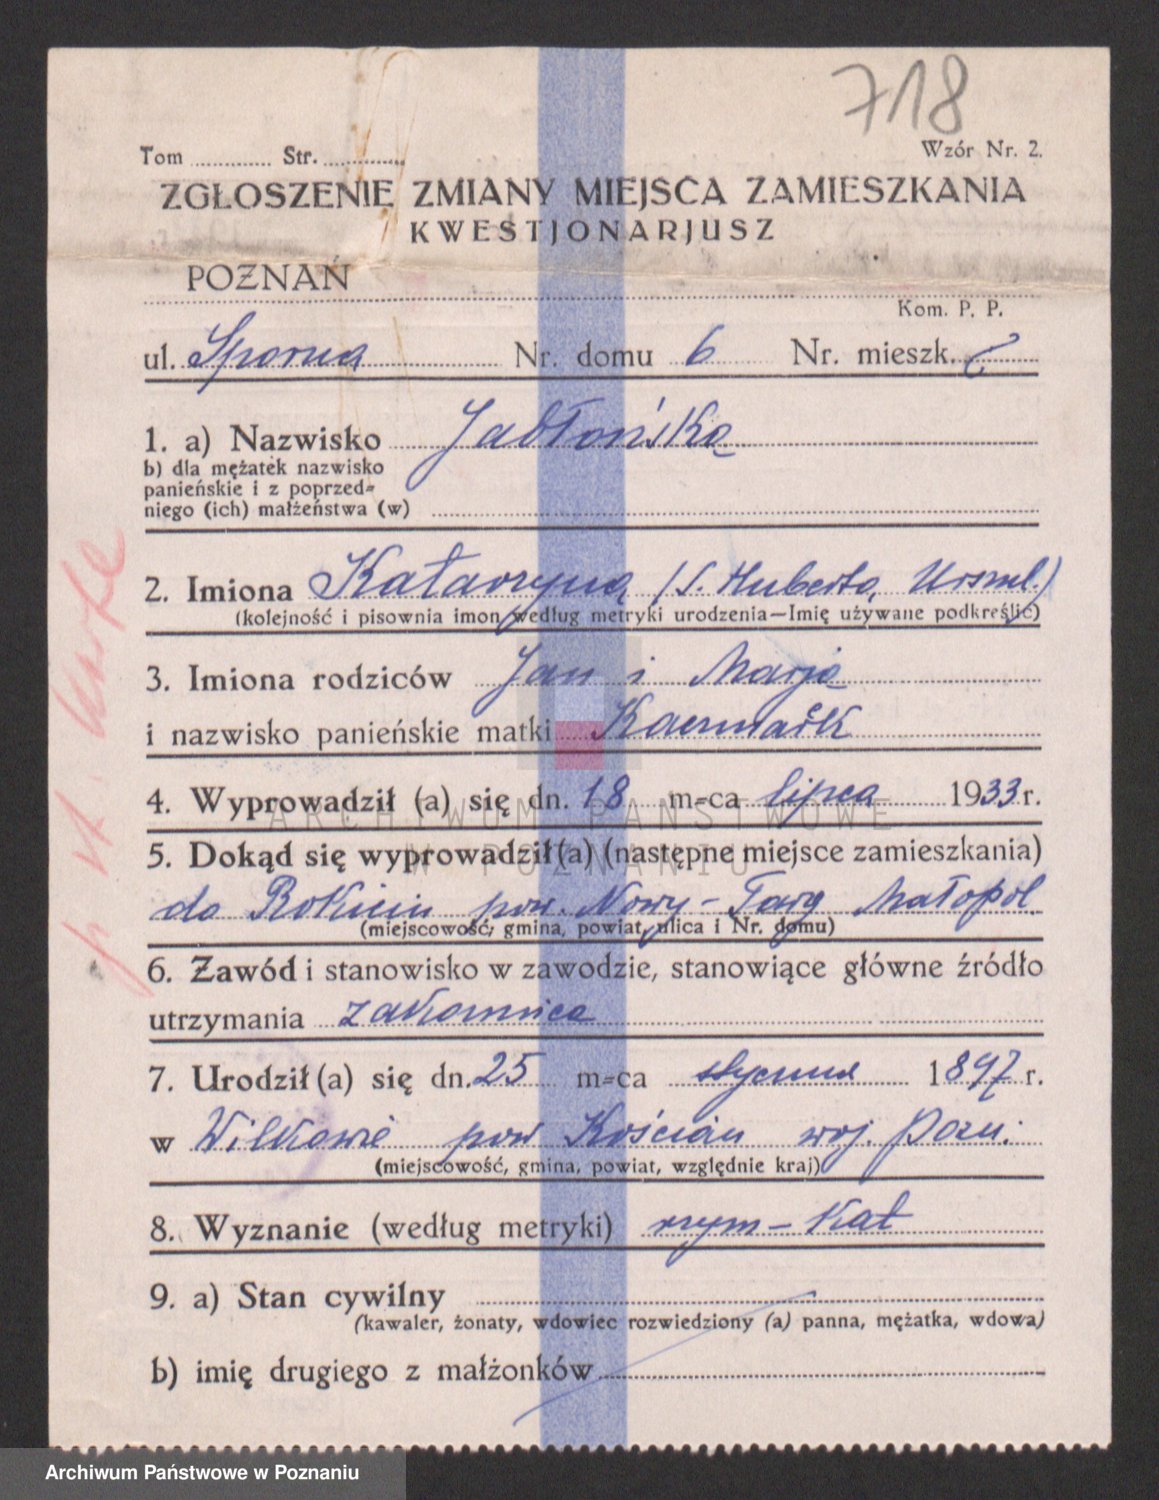 718
Tom ............ Str. ............
Wzór Nr. 2.
ZGŁOSZENIE ZMIANY MIEJSCA ZAMIESZKANIA
KWESTJONARJUSZ
POZNAŃ
Kom. P. P.
ul. Sporna Nr. domu 6 Nr. mieszk.
1. a) Nazwisko Jabłońska
b) dla mężatek nazwisko
panieńskie i z poprzed=
niego (ich) małżeństwa (w)
2. Imiona Katarzyna (S. Huberta, Urszul.)
(kolejność i pisownia imon według metryki urodzenia—Imię używane podkreślić)
3. Imiona rodziców Jan i Marja
i nazwisko panieńskie matki Kaczmarek
4. Wyprowadził (a) się dn. 18 m=ca lipca 1933 r.
ARCHIWUM PAŃSTWOWE
W POZNANIU
5. Dokąd się wyprowadził (a) (następne miejsce zamieszkania)
do Rokicin pow. Nowy-Targ Małopol.
(miejscowość, gmina, powiat, ulica i Nr. domu)
6. Zawód i stanowisko w zawodzie, stanowiące główne źródło
utrzymania zakonnica
7. Urodził (a) się dn. 25 m=ca stycznia 1897 r.
w Wilkowie pow Kościan woj. Pozn.
(miejscowość, gmina, powiat, względnie kraj)
8. Wyznanie (według metryki) rzym-kat
9. a) Stan cywilny
(kawaler, żonaty, wdowiec rozwiedziony (a) panna, mężatka, wdowa)
b) imię drugiego z małżonków
Archiwum Państwowe w Poznaniu